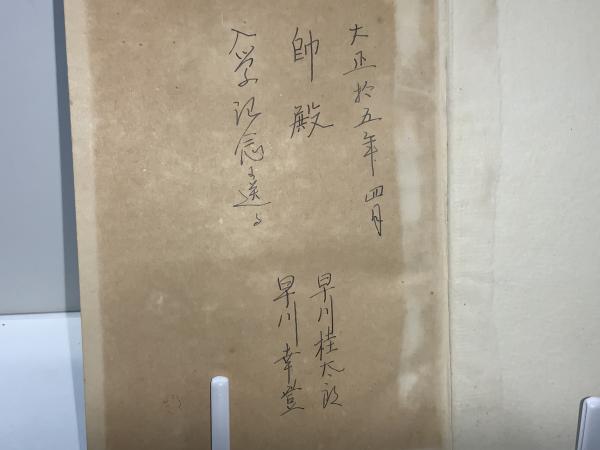 大正於五年四月
帥殿
入学記念ニ送る
早川桂太郎
早川幸登